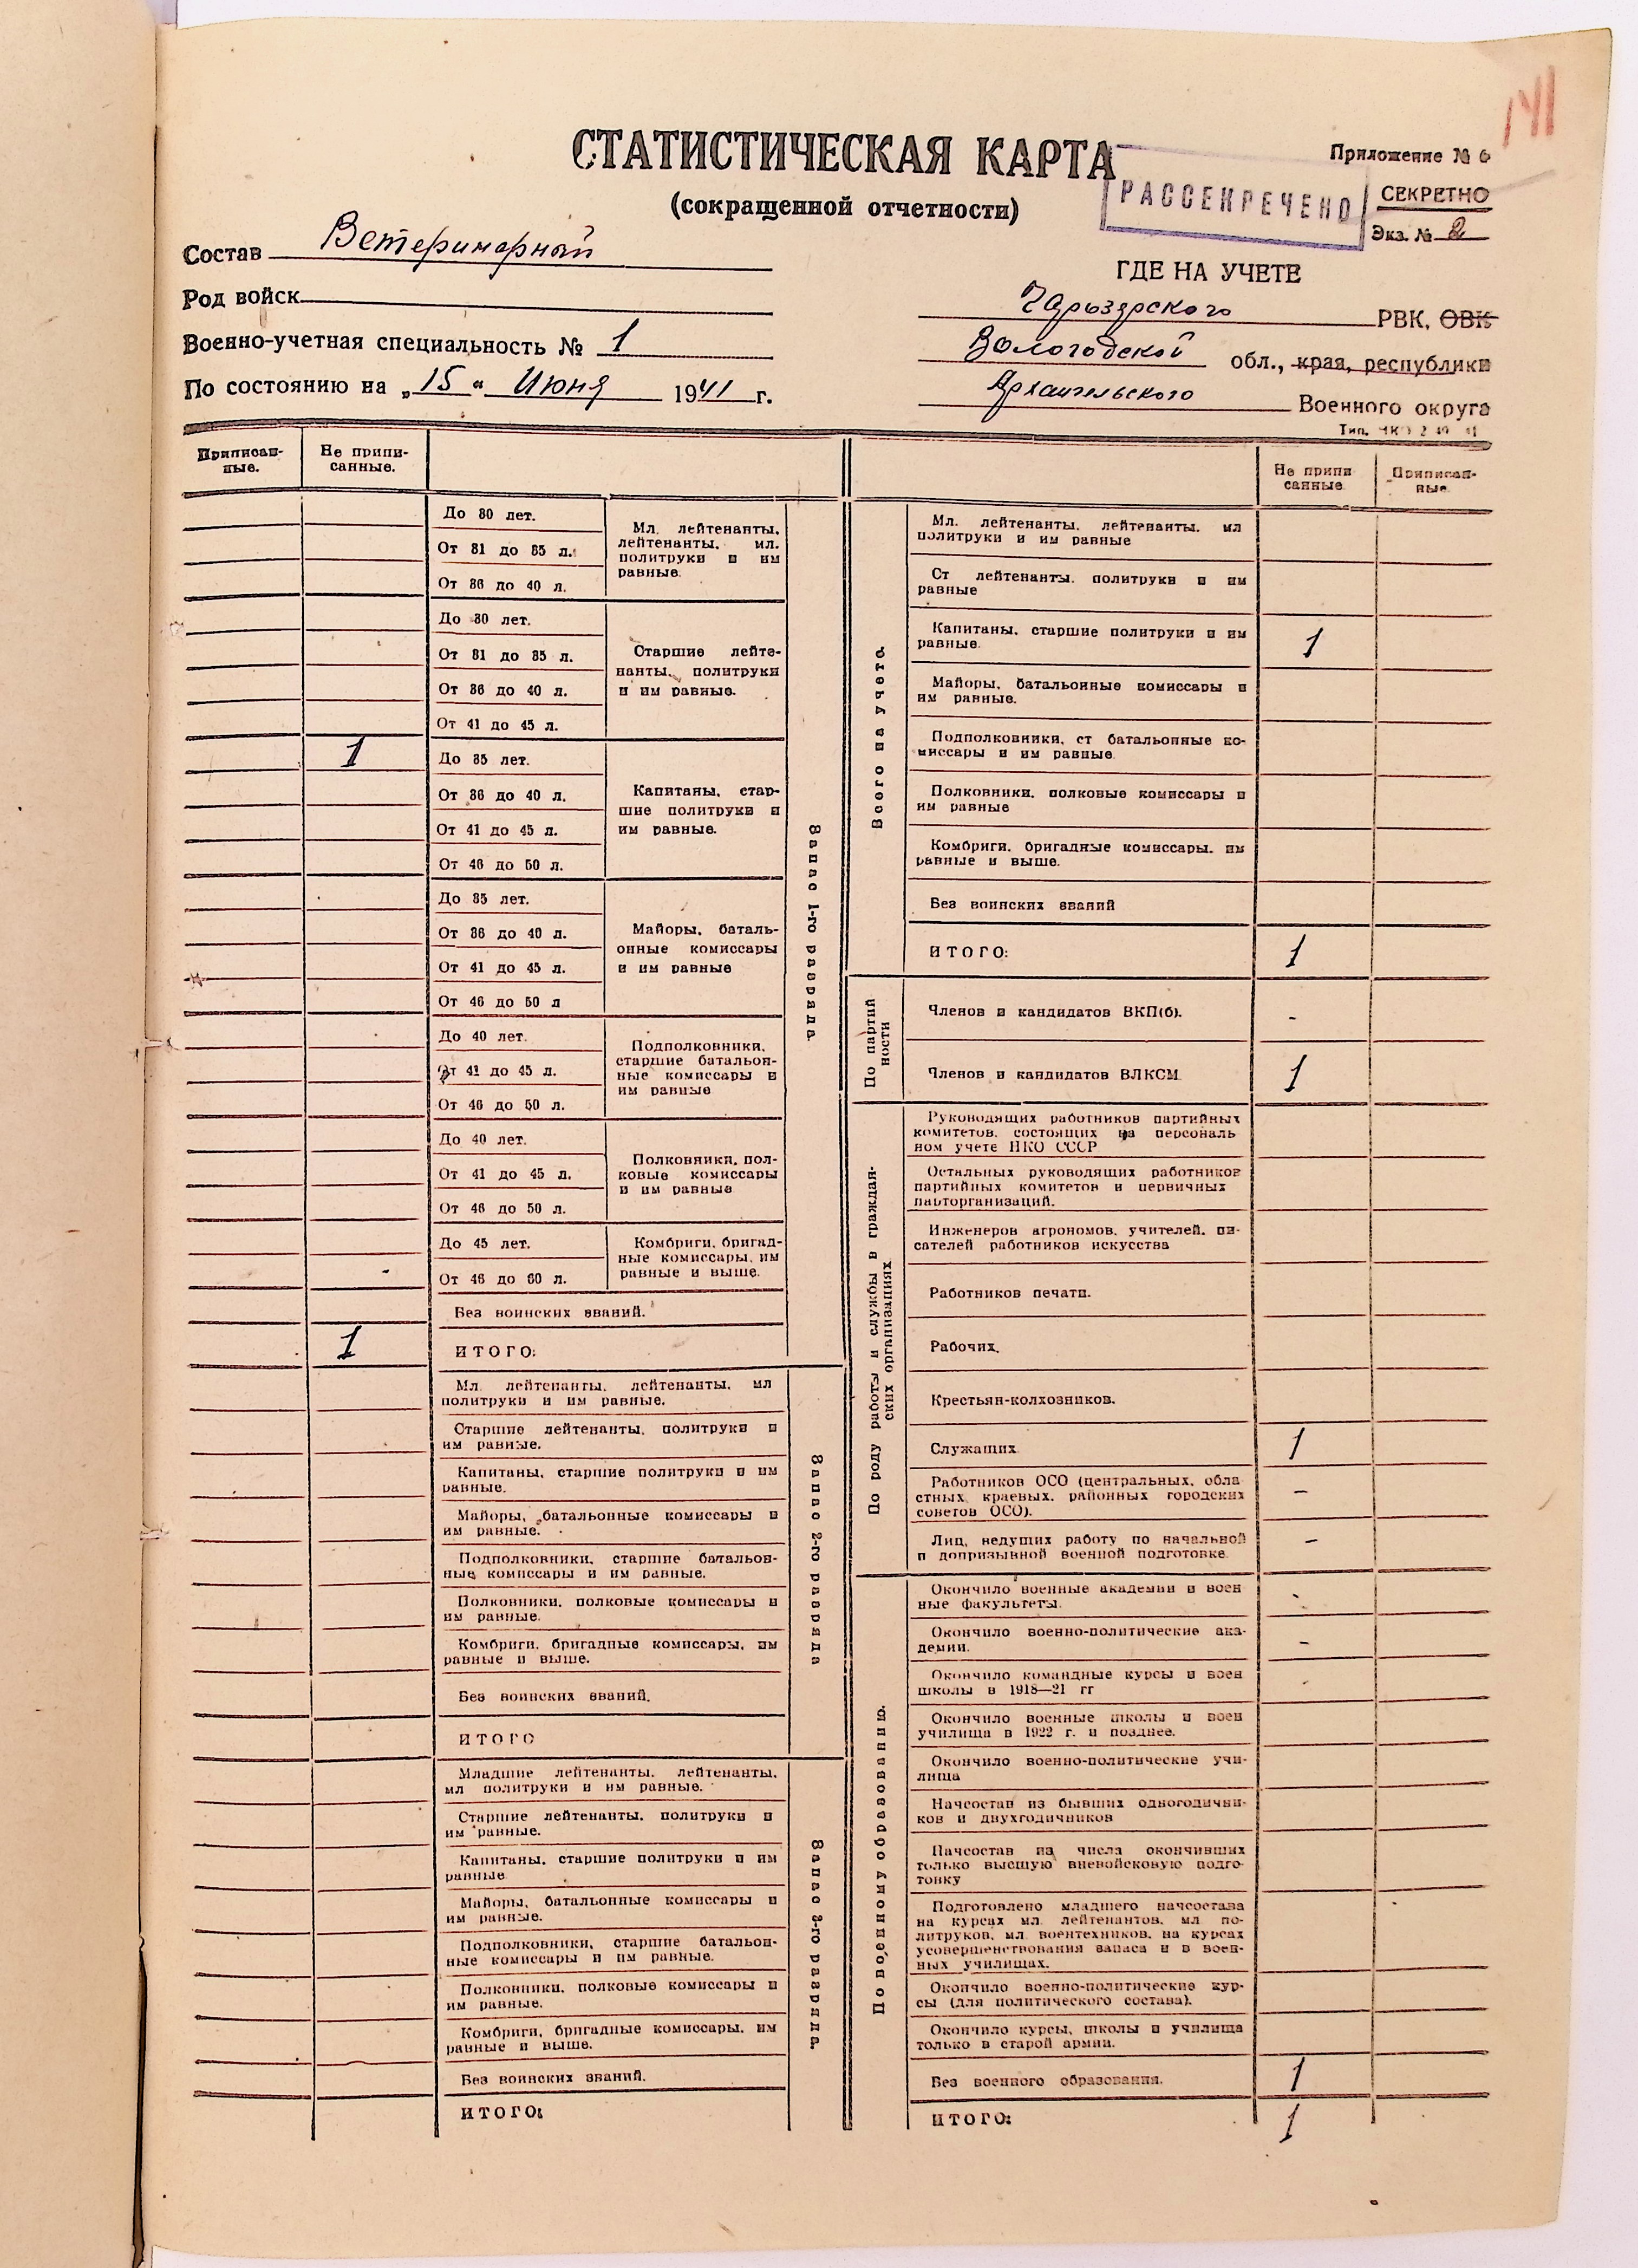 141
СТАТИСТИЧЕСКАЯ КАРТА
(сокращенной отчетности)
Приложение № 6
РАССЕКРЕЧЕНО
СЕКРЕТНО
Экз. № 2
Состав Ветеринарный
Род войск
Военно-учетная специальность № 1
По состоянию на „15“ Июня 1941 г.
ГДЕ НА УЧЕТЕ
Чарозерского РВК, ОВК
Вологодской обл., края, республики
Архангельского Военного округа
Приписан-
ные.
Не припи-
санные.
До 30 лет.
От 31 до 35 л.
От 36 до 40 л.
Мл. лейтенанты,
лейтенанты, мл.
политруки и им
равные.
До 30 лет.
От 31 до 35 л.
От 36 до 40 л.
От 41 до 45 л.
Старшие лейте-
нанты, политруки
и им равные.
1
До 35 лет.
От 36 до 40 л.
От 41 до 45 л.
От 46 до 50 л.
Капитаны, стар-
шие политруки и
им равные.
До 35 лет.
От 36 до 40 л.
От 41 до 45 л.
От 46 до 50 л
Майоры, баталь-
онные комиссары
и им равные
До 40 лет.
От 41 до 45 л.
От 46 до 50 л.
Подполковники,
старшие батальон-
ные комиссары и
им равные
До 40 лет.
От 41 до 45 л.
От 46 до 50 л.
Полковники, пол-
ковые комиссары
и им равные
До 45 лет.
От 46 до 60 л.
Комбриги, бригад-
ные комиссары, им
равные и выше.
Без воинских званий.
1
ИТОГО:
Запас 1-го разряда
Мл. лейтенанты, лейтенанты, мл
политруки и им равные.
Старшие лейтенанты, политруки и
им равные.
Капитаны, старшие политруки и им
равные.
Майоры, батальонные комиссары и
им равные.
Подполковники, старшие батальон-
ные комиссары и им равные.
Полковники, полковые комиссары и
им равные.
Комбриги, бригадные комиссары, им
равные и выше.
Без воинских званий.
ИТОГО
Запас 2-го разряда
Младшие лейтенанты, лейтенанты,
мл политруки и им равные.
Старшие лейтенанты, политруки и
им равные.
Капитаны, старшие политруки и им
равные
Майоры, батальонные комиссары и
им равные.
Подполковники, старшие батальон-
ные комиссары и им равные.
Полковники, полковые комиссары и
им равные.
Комбриги, бригадные комиссары, им
равные и выше.
Без воинских званий.
ИТОГО:
Запас 3-го разряда.
Не припи
санные
Приписан-
ные
Всего на учете.
Мл. лейтенанты, лейтенанты, мл
политруки и им равные
Ст лейтенанты, политруки и им
равные
Капитаны, старшие политруки и им
равные.
1
Майоры, батальонные комиссары и
им равные.
Подполковники, ст батальонные ко-
миссары и им равные
Полковники, полковые комиссары и
им равные
Комбриги, бригадные комиссары, им
равные и выше.
Без воинских званий
ИТОГО:
1
По партий
ности
Членов и кандидатов ВКП(б).
-
Членов и кандидатов ВЛКСМ
1
По роду работы и службы в граждан-
ских организациях
Руководящих работников партийных
комитетов, состоящих на персональ
ном учете НКО СССР
Остальных руководящих работников
партийных комитетов и первичных
парторганизаций.
Инженеров агрономов, учителей, пи-
сателей работников искусства
Работников печати.
Рабочих.
Крестьян-колхозников.
Служащих
1
Работников ОСО (центральных, обла
стных, краевых, районных городских
советов ОСО).
-
Лиц, ведущих работу по начальной
и допризывной военной подготовке.
-
По военному образованию.
Окончило военные академии и воен
ные факультеты.
-
Окончило военно-политические ака-
демии.
-
Окончило командные курсы и воен
школы в 1918—21 гг
-
Окончило военные школы и воен
училища в 1922 г. и позднее.
Окончило военно-политические учи-
лища
Начсостав из бывших одногодични-
ков и двухгодичников
Начсостав из числа окончивших
только высшую вневойсковую подго-
товку
Подготовлено младшего начсостава
на курсах мл. лейтенантов, мл по-
литруков, мл воентехников, на курсах
усовершенствования запаса и в воен-
ных училищах.
Окончило военно-политические кур-
сы (для политического состава).
Окончило курсы, школы и училища
только в старой армии.
Без военного образования.
1
ИТОГО:
1